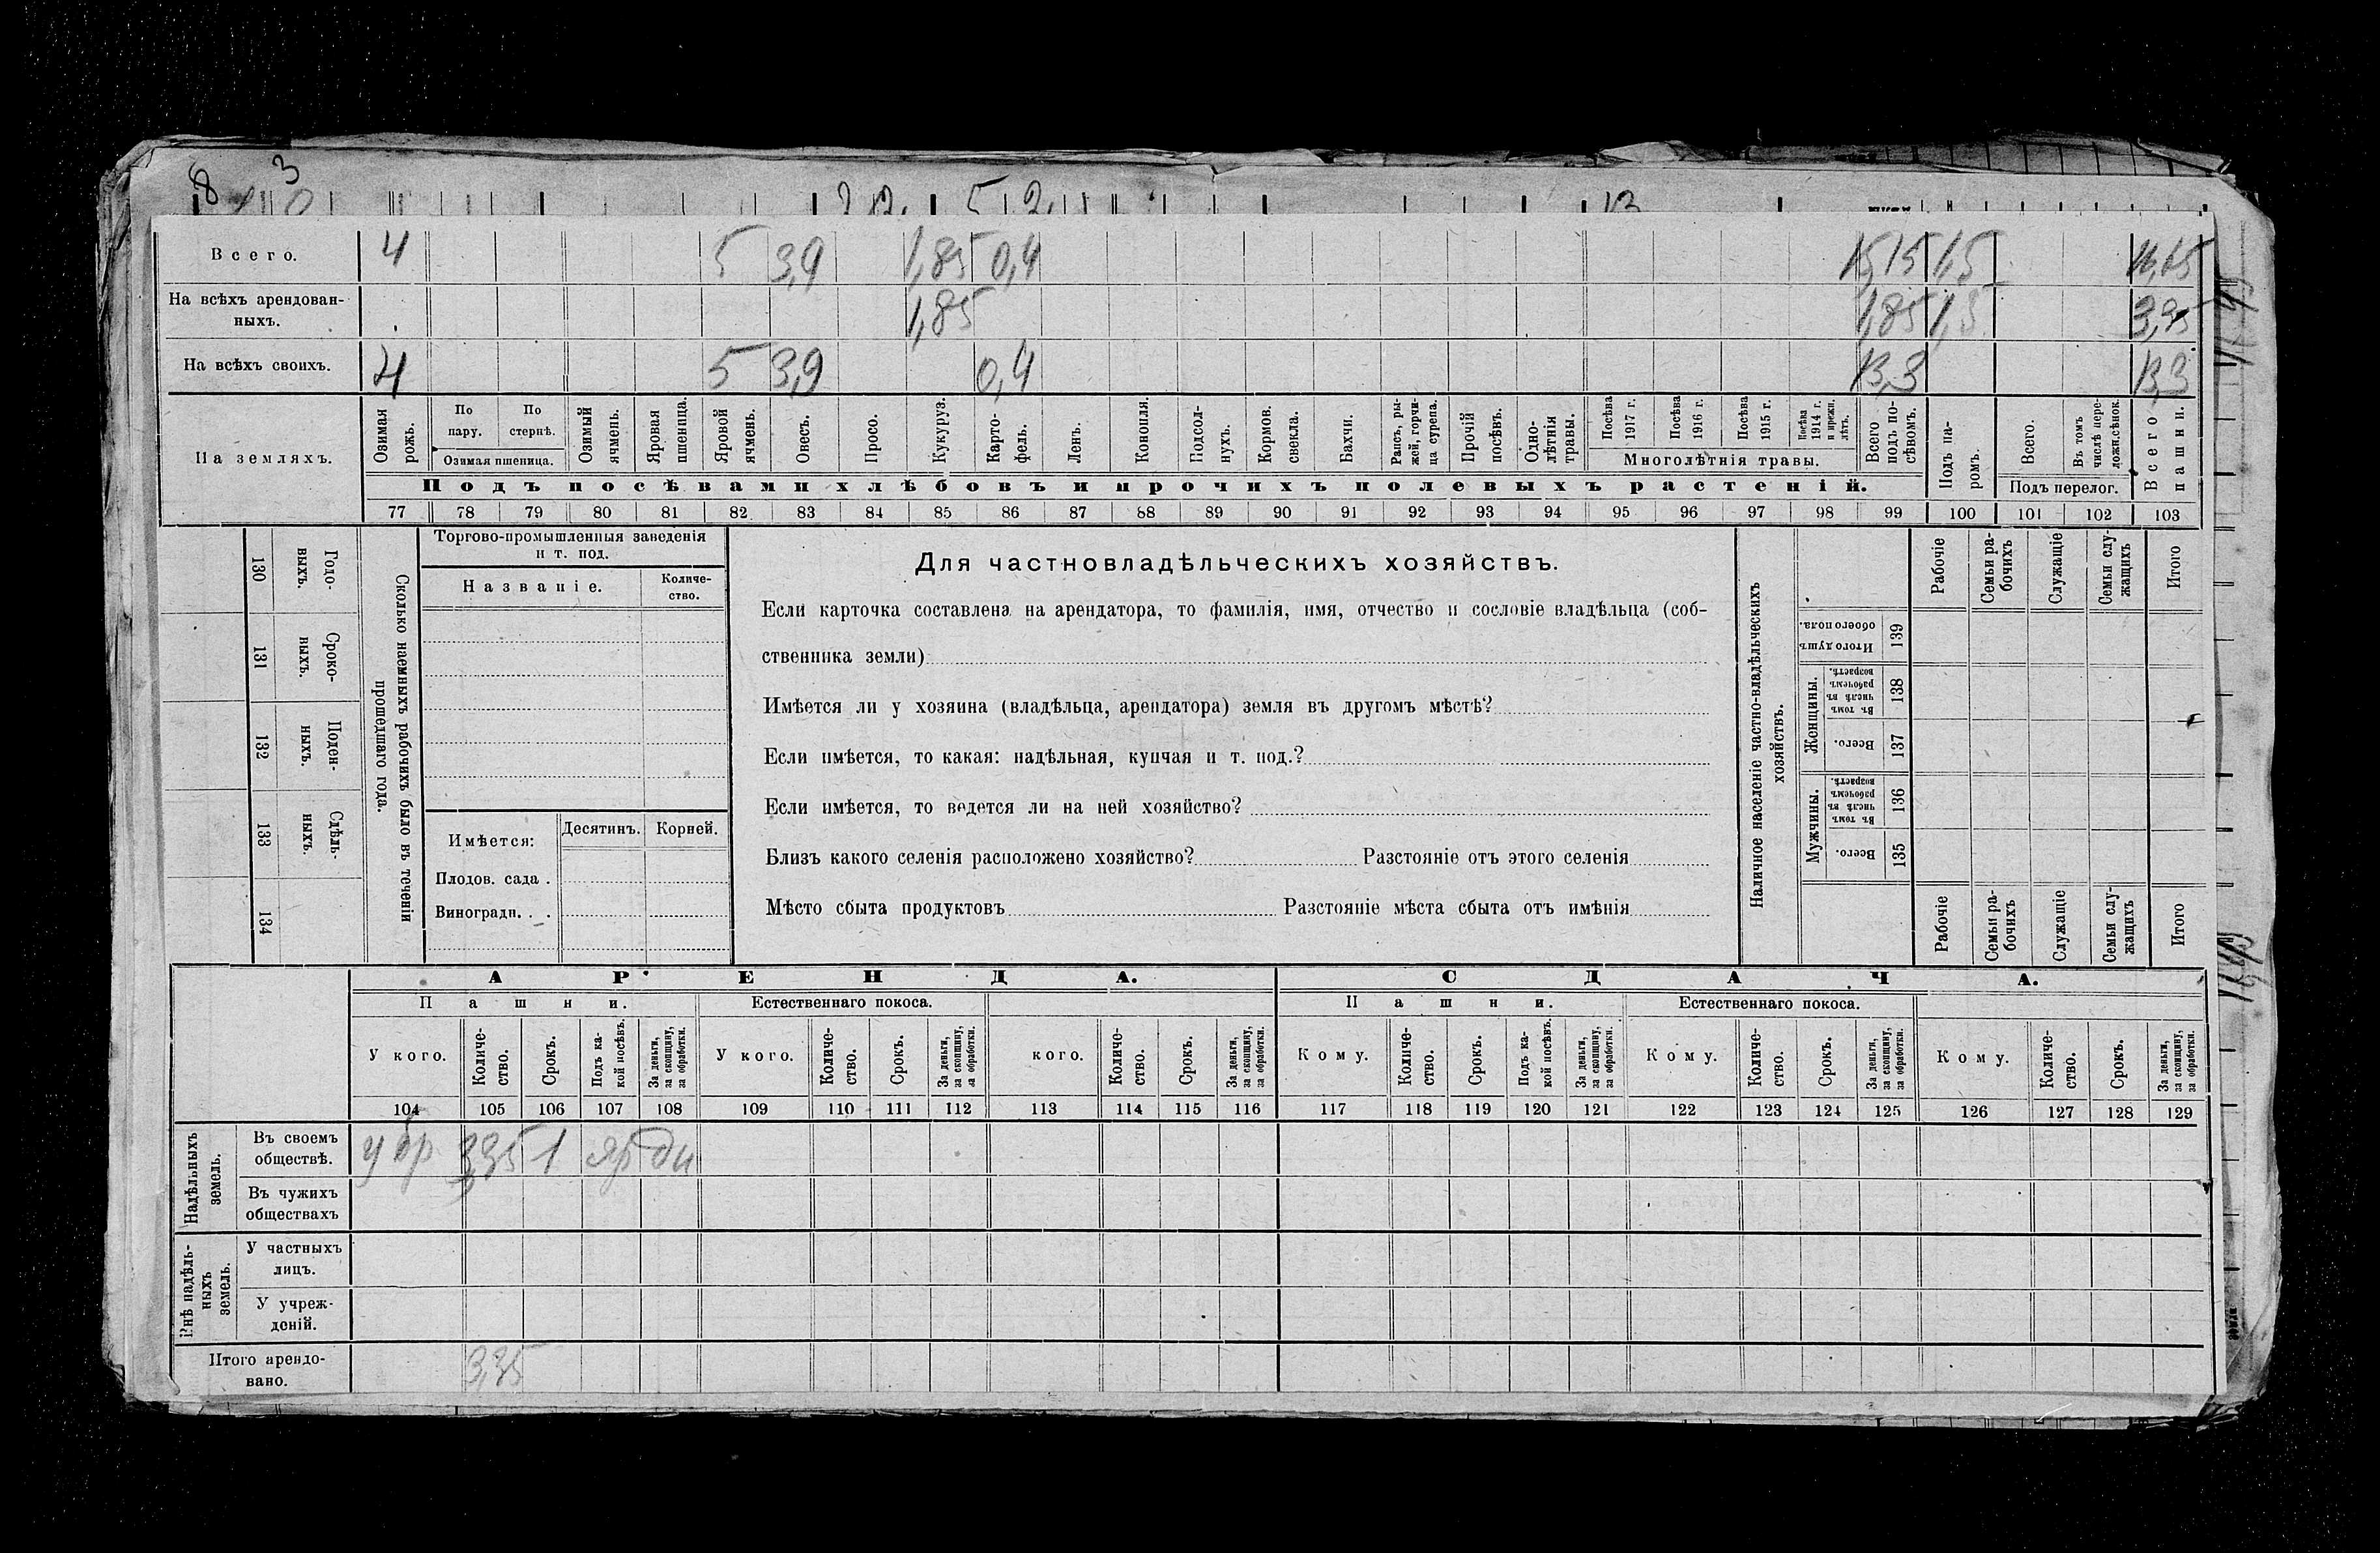 8 3
Всего. 4 5 3,9 1,85 0,4 15,15 1,5 16,65
На всѣхъ арендован-
ныхъ. 1,85 1,85 1,5 3,35
На всѣхъ своихъ. 4 5 3,9 0,4 13,3 13,3
На земляхъ.
Озимая рожь.
По пару.
По стернѣ.
Озимая пшеница.
Озимый ячмень.
Яровая пшеница.
Яровой ячмень.
Овесъ.
Просо.
Кукуруз.
Карто-
фель.
Ленъ.
Конопля.
Подсол-
нухъ.
Кормов. свекла.
Бахчи.
Рапсъ, ры-
жей, горчи-
ца сурепа.
Прочій посѣвъ.
Одно-
лѣтнія травы.
Посѣва 1917 г.
Посѣва 1916 г.
Посѣва 1915 г.
Посѣва 1914 г. и прежн. лѣтъ.
Многолѣтнія травы.
Всего подъ по-
сѣвомъ.
Подъ па-
ромъ.
Всего.
Въ томъ числѣ пере-
ложн. сѣнок.
Подъ перелог.
Всего пашни.
Подъ посѣвами хлѣбовъ и прочихъ полевыхъ растеній.
77 78 79 80 81 82 83 84 85 86 87 88 89 90 91 92 93 94 95 96 97 98 99 100 101 102 103
130 Годо-
выхъ.
131 Сроко-
выхъ.
132 Поден-
ныхъ.
133 Сдѣль-
ныхъ.
134
Сколько наемныхъ рабочихъ было въ теченіи
прошедшаго года.
Торгово-промышленныя заведенія
и т. под.
Названіе. Количе-
ство.
Имѣется: Десятинъ. Корней.
Плодов. сада .
Виноградн. . .
Для частновладѣльческихъ хозяйствъ.
Если карточка составлена на арендатора, то фамилія, имя, отчество и сословіе владѣльца (соб-
ственника земли)
Имѣется ли у хозяина (владѣльца, арендатора) земля въ другомъ мѣстѣ?
Если имѣется, то какая: надѣльная, купчая и т. под.?
Если имѣется, то ведется ли на ней хозяйство?
Близъ какого селенія расположено хозяйство? Разстояніе отъ этого селенія
Мѣсто сбыта продуктовъ Разстояніе мѣста сбыта отъ имѣнія
Наличное населеніе частно-владѣльческихъ
хозяйствъ.
Рабочіе
Семьи ра-
бочихъ
Служащіе
Семьи слу-
жащихъ
Итого
Итого душъ обоего пола. 139
Женщины.
Въ томъ числѣ въ рабочемъ возрастѣ. 138
Всего. 137
Мужчины.
Въ томъ числѣ въ рабочемъ возрастѣ. 136
Всего. 135
Рабочіе
Семьи ра-
бочихъ
Служащіе
Семьи слу-
жащихъ
Итого
АРЕНДА. СДАЧА.
Пашни. Естественнаго покоса. Пашни. Естественнаго покоса.
У кого.
Количе-
ство.
Срокъ.
Подъ ка-
кой посѣвъ.
За деньги,
за скопщину,
за обработки.
У кого.
Количе-
ство.
Срокъ.
За деньги,
за скопщину,
за обработки.
кого.
Количе-
ство.
Срокъ.
За деньги,
за скопщину,
за обработки.
Кому.
Количе-
ство.
Срокъ.
Подъ ка-
кой посѣвъ.
За деньги,
за скопщину,
за обработки.
Кому.
Количе-
ство.
Срокъ.
За деньги,
за скопщину,
за обработки.
Кому.
Количе-
ство.
Срокъ.
За деньги,
за скопщину,
за обработки.
104 105 106 107 108 109 110 111 112 113 114 115 116 117 118 119 120 121 122 123 124 125 126 127 128 129
Надѣльныхъ
земель.
Въ своемъ
обществѣ. 3,35 1 яр
Въ чужихъ
обществахъ
Внѣ надѣль-
ныхъ
земель.
У частныхъ
лицъ.
У учреж-
деній.
Итого арендо-
вано. 3,35